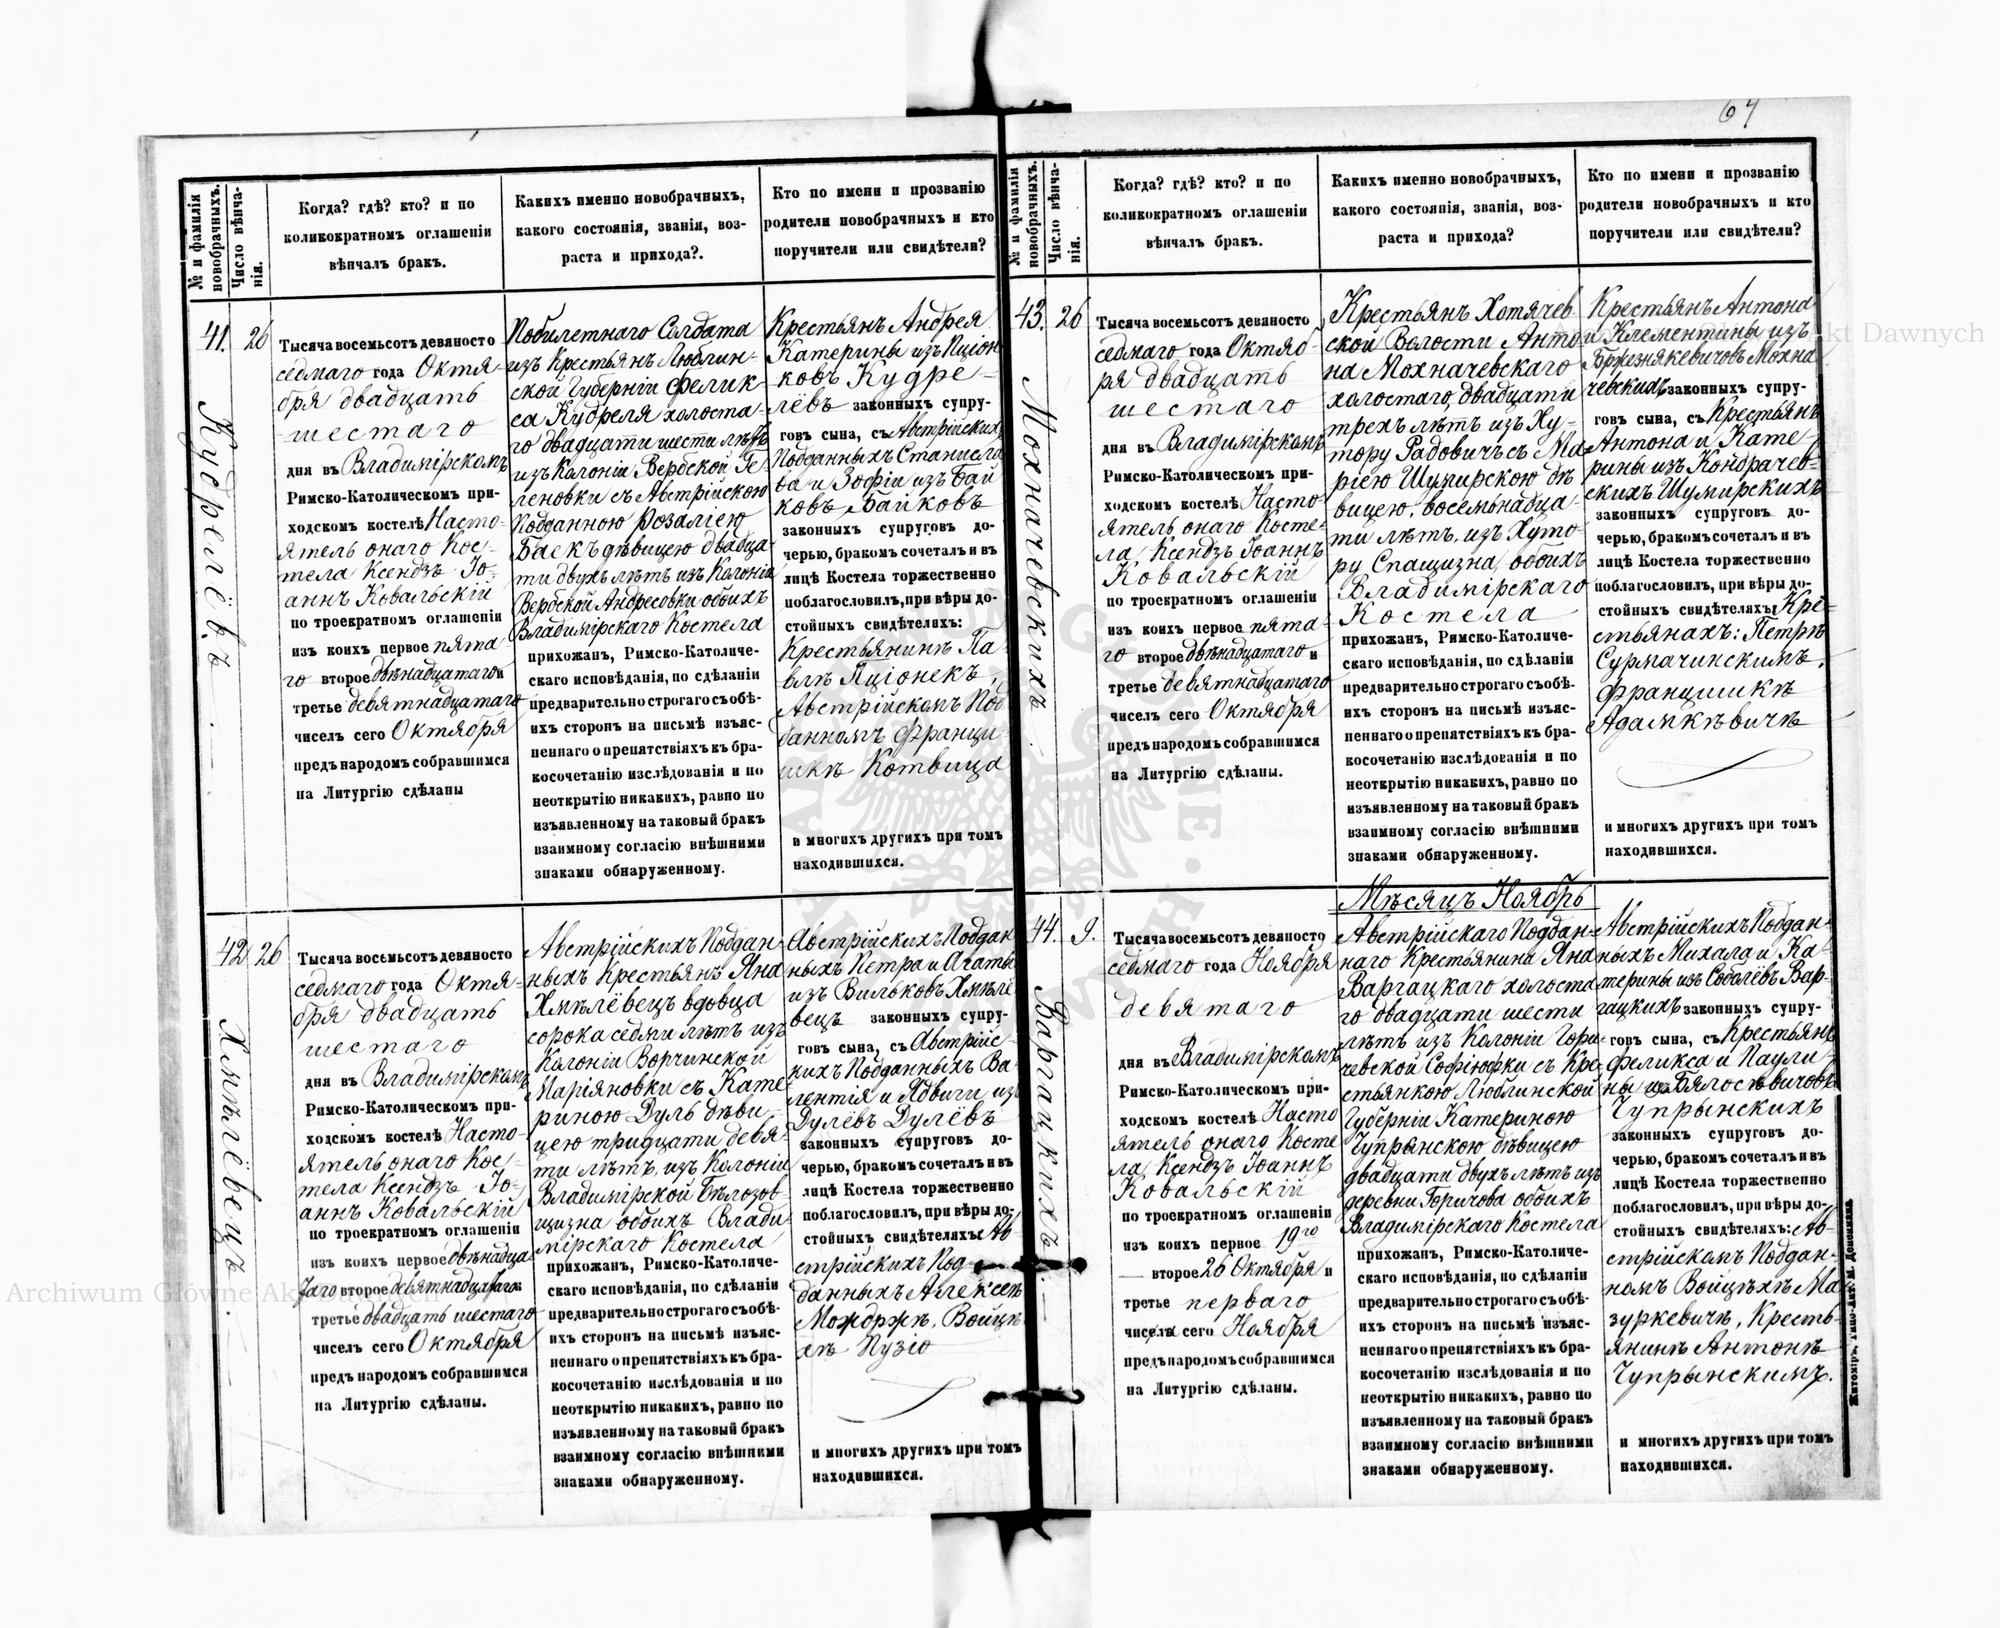 64
№ и фамилія
новобрачныхъ.
Число вѣнча-
нія.
Когда? гдѣ? кто? и по
коликократномъ оглашеніи
вѣнчалъ бракъ.
Какихъ именно новобрачныхъ,
какого состоянія, званія, воз-
раста и прихода?.
Кто по имени и прозванію
родители новобрачныхъ и кто
поручители или свидѣтели?
41.
Кудрелёвъ
26
Тысяча восемьсотъ девяносто
седмаго года Октя-
бря двадцать
шестаго
дня въ Владимірскомъ
Римско-Католическомъ при-
ходскомъ костелѣ Насто-
ятель онаго Кос-
тела Ксендзъ Іо-
аннъ Ковальскій
по троекратномъ оглашеніи
изъ коихъ первое пята-
го второе двѣнадцатаго и
третье девятнадцатаго
чиселъ сего Октября
предъ народомъ собравшимся
на Литургію сдѣланы
Побилетнаго Солдата
изъ Крестьянъ Люблин-
ской Губерніи Фелик-
са Кудреля холоста-
го двадцати шести лѣтъ
изъ Колоніи Вербской Ге-
леновки съ Австрійскою
Подданною Розаліею
Баекъ дѣвицею двадца-
ти двухъ лѣтъ изъ Колоніи
Вербской Андресовки обоихъ
Владимірскаго Костела
прихожанъ, Римско-Католиче-
скаго исповѣданія, по сдѣланіи
предварительно строгаго съ обѣ-
ихъ сторонъ на письмѣ изъяс-
неннаго о препятствіяхъ къ бра-
косочетанію изслѣдованія и по
неоткрытію никакихъ, равно по
изъявленному на таковый бракъ
взаимному согласію внѣшними
знаками обнаруженному.
Крестьянъ Андрея
Катерины изъ Пціон-
ковъ Кудре-
лёвъ законныхъ супру-
говъ сына, съ Австрійскихъ
Подданныхъ Станисла-
ва и Зофіи изъ Бай
ковъ Байковъ
законныхъ супруговъ до-
черью, бракомъ сочеталъ и въ
лицѣ Костела торжественно
поблагословилъ, при вѣры до-
стойныхъ свидѣтеляхъ:
Крестьянинѣ Па-
влѣ Пціонекъ,
Австрійскомъ Под
данномъ Франци-
шкѣ Котвица
и многихъ другихъ при томъ
находившихся.
42
Хмѣлёвецъ.
26
Тысяча восемьсотъ девяносто
седмаго года Октя-
бря двадцать
шестаго
дня въ Владимірскомъ
Римско-Католическомъ при-
ходскомъ костелѣ Насто-
ятель онаго Кос-
тела Ксендзъ Іо-
аннъ Ковальскій
по троекратномъ оглашеніи
изъ коихъ первое двѣнадца-
таго второе девятнадцатаго и
третье двадцать шестаго
чиселъ сего Октября
предъ народомъ собравшимся
на Литургію сдѣланы.
Австрійскихъ Поддан-
ныхъ Крестьянъ Яна
Хмѣлёвецъ вдовца
сорока седми лѣтъ изъ
Колоніи Ворчинской
Маріяновки съ Кате-
риною Дуль дѣви-
цею тридцати девя-
ти лѣтъ, изъ Колоніи
Владимірской Бѣлозов-
щизна обоихъ Влади-
мірскаго Костела
прихожанъ, Римско-Католиче-
скаго исповѣданія, по сдѣланіи
предварительно строгаго съ обѣ-
ихъ сторонъ на письмѣ изъяс-
неннаго о препятствіяхъ къ бра-
косочетанію изслѣдованія и по
неоткрытію никакихъ, равно по
изъявленному на таковый бракъ
взаимному согласію внѣшними
знаками обнаруженному.
Австрійскихъ Поддан-
ныхъ Петра и Агаты
изъ Вильковъ Хмѣлё-
вецъ законныхъ супру-
говъ сына, съ Австрійс-
кихъ Подданныхъ Ва-
лентія и Ядвиги изъ
Дулёвъ Дулёвъ
законныхъ супруговъ до-
черью, бракомъ сочеталъ и въ
лицѣ Костела торжественно
поблагословилъ, при вѣры до-
стойныхъ свидѣтеляхъ: Ав-
стрійскихъ Под-
данныхъ Алексеѣ
Можджѣ, Войцѣ-
хѣ Пузіо
и многихъ другихъ при томъ
находившихся.
№ и фамилія
новобрачныхъ.
Число вѣнча-
нія.
Когда? гдѣ? кто? и по
коликократномъ оглашеніи
вѣнчалъ бракъ.
Какихъ именно новобрачныхъ,
какого состоянія, званія, воз-
раста и прихода?
Кто по имени и прозванію
родители новобрачныхъ и кто
поручители или свидѣтели?
43.
Мохначевскихъ
26
Тысяча восемьсотъ девяносто
седмаго года Октяб-
ря двадцать
шестаго
дня въ Владимірскомъ
Римско-Католическомъ при-
ходскомъ костелѣ Насто-
ятель онаго Косте-
ла Ксендзъ Іоаннъ
Ковальскій
по троекратномъ оглашеніи
изъ коихъ первое пята-
го второе двѣнадцатаго и
третье девятнадцатаго
чиселъ сего Октября
предъ народомъ собравшимся
на Литургію сдѣланы.
Крестьянъ Хотячев-
ской Волости Анто-
на Мохначевскаго
холостаго, двадцати
трехъ лѣтъ изъ Ху-
тору Радовичъ съ Ма-
ріею Шумирскою дѣ
вицею, восемьнадца-
ти лѣтъ, изъ Хуто-
ру Спащизна, обоихъ
Владимірскаго
Костела
прихожанъ, Римско-Католиче-
скаго исповѣданія, по сдѣланіи
предварительно строгаго съ обѣ-
ихъ сторонъ на письмѣ изъяс-
неннаго о препятствіяхъ къ бра-
косочетанію изслѣдованія и по
неоткрытію никакихъ, равно по
изъявленному на таковый бракъ
взаимному согласію внѣшними
знаками обнаруженному.
Крестьянъ Антона
и Клементины изъ
Бржезнякевичовъ Мохна
чевскихъ законныхъ супру-
говъ сына, съ Крестьянъ
Антона и Кате-
рины изъ Кондрачев-
скихъ Шумирскихъ
законныхъ супруговъ до-
черью, бракомъ сочеталъ и въ
лицѣ Костела торжественно
поблагословилъ, при вѣры до-
стойныхъ свидѣтеляхъ: Кре-
стьянахъ: Петрѣ
Сурмачинскимъ,
Францишкѣ
Адамкѣвичѣ
и многихъ другихъ при томъ
находившихся.
Мѣсяцъ Ноябрь
44.
Варгацкихъ
9.
Тысяча восемьсотъ девяносто
седмаго года Ноября
девятаго
дня въ Владимірскомъ
Римско-Католическомъ при-
ходскомъ костелѣ Насто
ятель онаго Косте
ла Ксендзъ Іоаннъ
Ковальскій
по троекратномъ оглашеніи
изъ коихъ первое 19го
второе 26 Октября и
третье перваго
чиселъ сего Ноября
предъ народомъ собравшимся
на Литургію сдѣланы.
Австрійскаго Поддан-
наго Крестьянина Яна
Варгацкаго холоста
го двадцати шести
лѣтъ изъ Колоніи Гори-
чевской Софіюфки съ Кре-
стьянкою Люблинской
Губерніи Катериною
Чупрынскою дѣвицею
двадцати двухъ лѣтъ изъ
деревни Горичова обоихъ
Владимірскаго Костела
прихожанъ, Римско-Католиче-
скаго исповѣданія, по сдѣланіи
предварительно строгаго съ обѣ-
ихъ сторонъ на письмѣ изъяс-
неннаго о препятствіяхъ къ бра-
косочетанію изслѣдованія и по
неоткрытію никакихъ, равно по
изъявленному на таковый бракъ
взаимному согласію внѣшними
знаками обнаруженному.
Австрійскихъ Поддан-
ныхъ Михала и Ка-
терины изъ Соболёвъ Вар-
гацкихъ законныхъ супру-
говъ сына, съ Крестьянъ
Феликса и Паули-
ны изъ Бялосѣвичовъ
Чупрынскихъ
законныхъ супруговъ до-
черью, бракомъ сочеталъ и въ
лицѣ Костела торжественно
поблагословилъ, при вѣры до-
стойныхъ свидѣтеляхъ: Ав-
стрійскомъ Поддан-
номъ Войцѣхѣ Ма-
зуркевичѣ, Кресть-
янинѣ Антонѣ
Чупрынскимъ.
и многихъ другихъ при томъ
находившихся.
Житоміръ, типо-лит. М. Дененмана
Archiwum Główne Akt Dawnych
Archiwum Główne Akt Dawnych